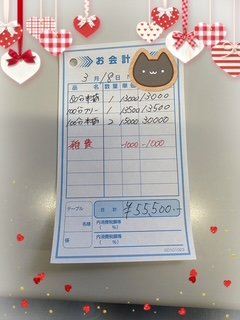 お会計
3月18日
品名 数量 単価
80分本指 1 13000 13000
100分フリー 1 13500 13500
100分本指 2 15000 30000
雑費 -1000 -1000
テーブル 合計 ¥55,500-
名 内消費税額等
( %)
様 内消費税額等
( %)